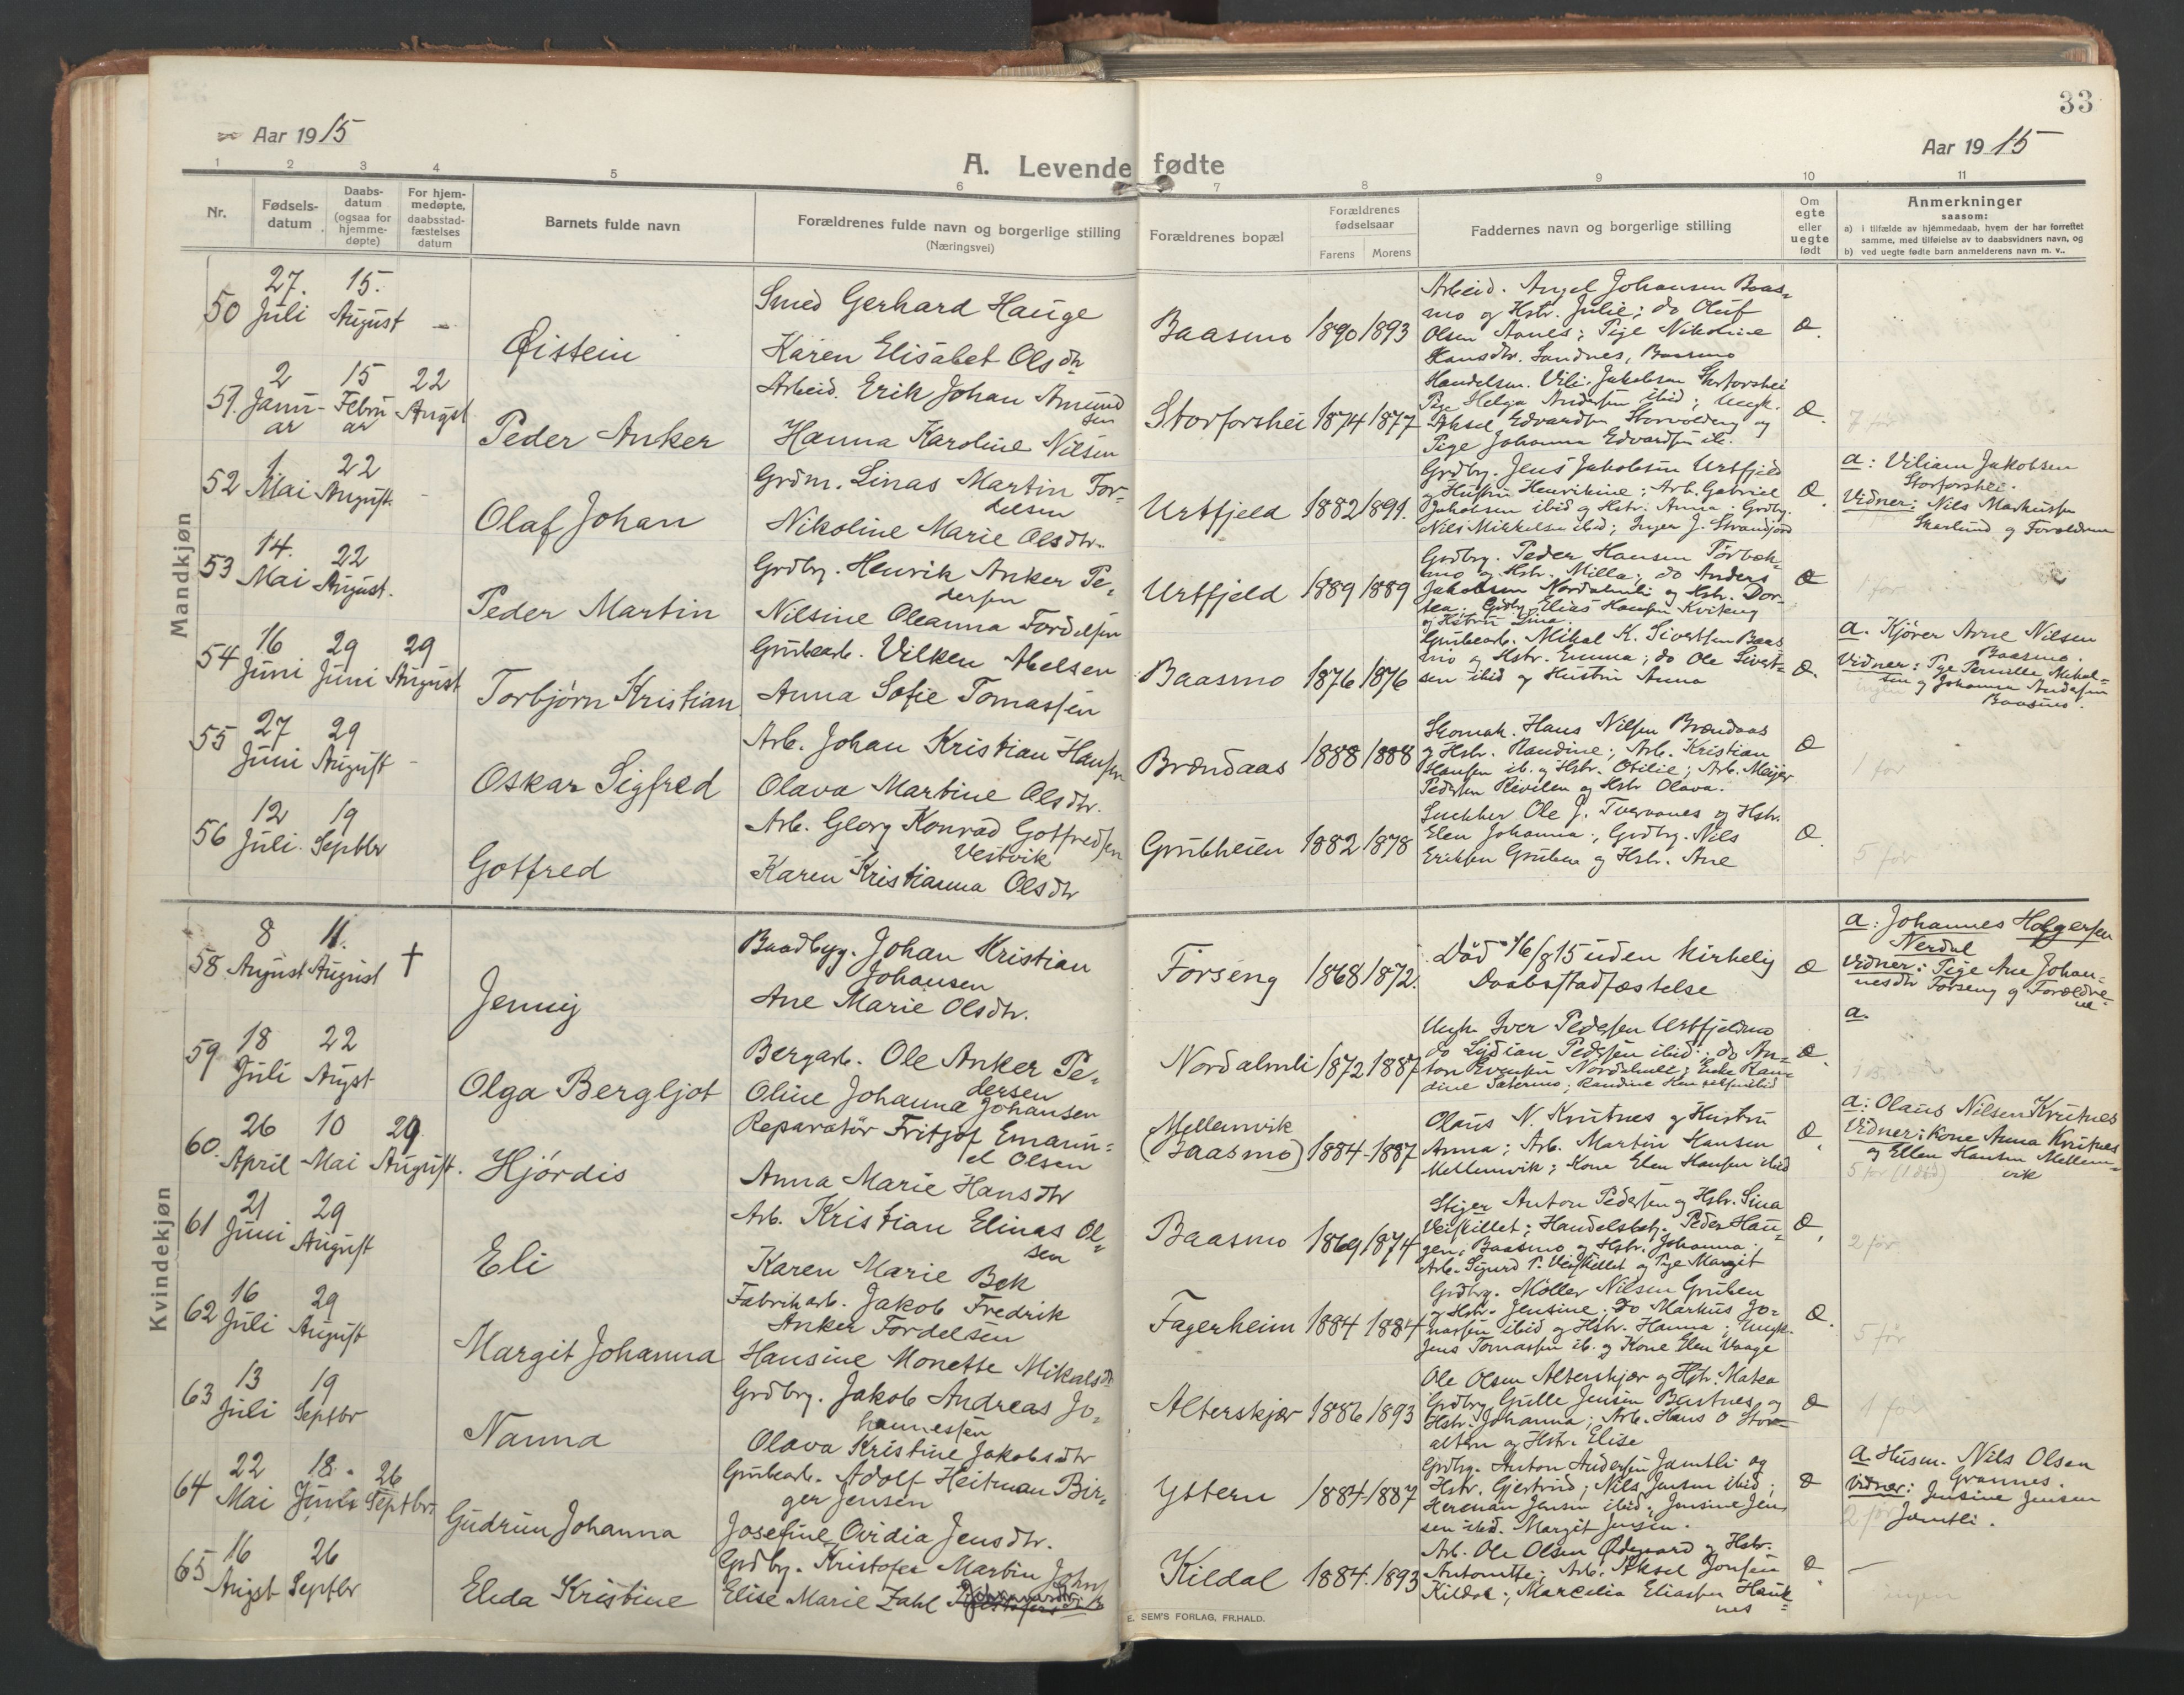 33
Aar 1915
Aar 1915
A. Levende fødte
1 2 3 4 5 6 7 8 9 10 11
Nr.
Fødsels-
datum
Daabs-
datum
(ogsaa for
hjemme-
døpte)
For hjem-
medøpte,
daabsstad-
fæstelses
datum
Barnets fulde navn
Forældrenes fulde navn og borgerlige stilling
(Næringsvei)
Forældrenes bopæl
Forældrenes
fødselsaar
Farens Morens
Faddernes navn og borgerlige stilling
Om
egte
eller
uegte
født
Anmerkninger
saasom:
a) i tilfælde av hjemmedaab, hvem der har forrettet
samme, med tilføielse av to daabsvidners navn, og
b) ved uegte fødte barn anmelderens navn m. v..
Mandkjøn
50
27. Juli
15. August
Øistein
Smed Gerhard Hauge
Karen Elisabet Olsdtr
Baasmo 1890 1893
Arbeid. Angel Johansen Baas-
mo og Hstr. Julie; do Oluf
Olsen Aanes; Pige Nikoline
Hansdtr. Sandnes, Baasmo
51.
2 Januar
15 Februar
22 Augst
Peder Anker
Arbeid. Erik Johan Amund
sen
Hanna Karoline Nilsen
Storforshei 1874 1877
Handelsm. Vili. Jakobsen Storforshei
Pige Helga Andersen ibid; Ungk.
Aksel Edvardsen Storvolden og
Pige Johanna Edvardsen ib.
7 før
52
1. Mai
22 August.
Olaf Johan
Grdm. Linas Martin For-
delsen
Nikoline Marie Olsdtr.
Urtfjeld 1882 1891.
Grdbr. Jens Jakobsen Urtfjeld
og Hustru Henrikine; Arb. Gabriel
Jakobsen ibid og Hstr. Anna; Grdbr.
Nils Mikkelsen ibid; Inger J. Strandjord
a: Viliam Jakobsen
Storforshei.
Vidner: Nils Markussen
Skarlund og Forældrene
53
14. Mai
22 August.
Peder Martin
Grdbr. Henrik Anker Pe-
dersen
Nilsine Oleanna Fordelsen
Urtfjeld 1889 1889
Grdbr. Peder Hansen Tørbæk-
mo og Hstr. Milla; do Anders
Jakobsen Nordalmli og Hstr. Dor-
tea; Grdbr. Elias Hansen
og Hstru Lina.
1 før
54
16 Juni
29 Juni
29 August
Torbjørn Kristian
Grubearb. Vilken Abelsen
Anna Sofie Tomassen
Baasmo 1876 1876
Grubearb. Mikal K. Sivertsen Baas
mo og Hstr. Emma; do Ole Sivert-
sen ibid og Hustru Anna
a. Kjører Arne Nilsen
Baasmo.
Vidner: Pige Pernille Mikal-
sen og Johanna Andersen
Baasmo.
55
27 Juni
29 August
Oskar Sigfred
Arb. Johan Kristian Hansen
Olava Martine Olsdtr.
Brændaas 1888 1888
Skomak. Hans Nilsen Brændaas
og Hstr. Randine; Arb. Kristian
Hansen ib. og Hstr. Otilie; Arb. Meyer
Pedersen Revilen og Hstr Olava.
1 før
56
12 Juli.
19 Septbr
Gotfred
Arb. Georg Konrad Gotfredsen
Vestvik
Karen Kristianna Olsdtr
Grubheien 1882 1878
Snekker Ole J. Tvervanes og Hstr.
Elen Johanna; Grdbr. Nils
Eriksen Gruben og Hstr. Ane
5 før
Kvindekjøn
58
8 August
11. August
†
Jenny
Baadbyg. Johan Kristian
Johansen
Ane Marie Olsdtr.
Forseng 1868 1872.
Død 16/8 15 uden kirkelig
Daabsstadfæstelse
a: Johannes Holgersen
Nerdal
Vidner: Pige Ane Johan-
nesdtr Forseng og Forældre-
ne
59
18 Juli
22 Augst
Olga Bergljot
Bergarb. Ole Anker Pe-
dersen
Oline Johanna Johansen
Nordalmli 1872 1887
Ungk. Iver Pedersen Urtfjeldmo
do Lydian Pedersen ibid; do An-
ton Evensen Nordalmli; Enke Ran-
dine Sætermo; Randine ibid
a.
60.
26 April
10 Mai
29 August.
Hjørdis
Reparatør Fritjof Emanu-
el Olsen
Anna Marie Hansdtr
Mellemvik
(Baasmo) 1884 1887
Olaus N. Krutnes og Hustru
Anna; Arb. Martin Hansen
Mellemvik; Kone Elen Hansen ibid
a: Olaus Nilsen Krutnes
Vidner: Kone Anna Krutnes
og Ellen Hansen Mellem-
vik
61
21 Juni
29 August
Eli
Arb. Kristian Elinas Ol-
sen
Karen Marie Bek
Baasmo 1869 1874
Stiger Anton Pedersen og Hstr. Sina
Veiskillet; Handelsbetj. Peder Hau-
gen, Baasmo og Hstr. Johanna;
Arb. Sigurd P. Veiskillet og Pige Margit
2 før
62
16 Juli
29 August
Margit Johanna
Fabrikarb. Jakob Fredrik
Anker Fordelsen
Hansine Monette Mikalsdtr
Fagerheim 1884 1884
Grdbr. Møller Nilsen Gruben
og Hstr. Jensine; do Markus Jo-
nassen ibid og Hstr. Hanna; Ungk.
Jens Tomassen ib. og Kone Elen Vaage
5 før
63
13 Juli
19 Septbr
Nanna
Grdbr. Jakob Andreas Jo-
hannessen
Olava Kristine Jakobsdtr
Alterskjær 1886 1893
Ole Olsen Alterskjær og Hstr. Matea
Grdbr. Gulle Jensen Bustnes og
Hstr. Johanna; Arb. Hans O Stor-
alteren og Hstr. Elise
1 før
64
22 Mai
18. Juni
26 Septbr.
Gudrun Johanna
Grubearb. Adolf Heitman Bir-
ger Jensen
Josefine Ovidia Jensdtr.
Ytteren 1884 1887
Grdbr. Anton Andersen Jamtli og
Hstr. Gjertrud; Nils Jensen ibid;
Herman Jensen ibid; Jensine Jen
sen ibid. Margit Jensen.
a. Husm. Nils Olsen
Grannes.
Vidner: Jensine Jensen
Jamtli.
2 før
65
16 Augst
26 Septbr
Elida Kristine
Grdbr. Kristofer Martin Johns
Elise Marie Zahl
Kildal 1884. 1893
Arb. Ole Olsen Ødegaard og Hstr.
Antonette; Arb. Aksel Jonsen
Kildal; Marcelia Eliassen Hauk-
nes
ingen
E. SEM'S FORLAG, FR.HALD.